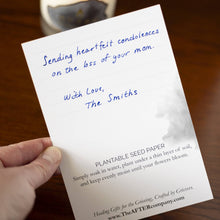 Sending heartfelt condolences
on the loss of your mom.
With Love,
The Smiths
PLANTABLE SEED PAPER
Simply soak in water, plant under a thin layer of soil,
and keep evenly moist until your flowers bloom.
Healing Gifts for the Grieving, Crafted by Grievers.
www.TheAFTERcompany.com